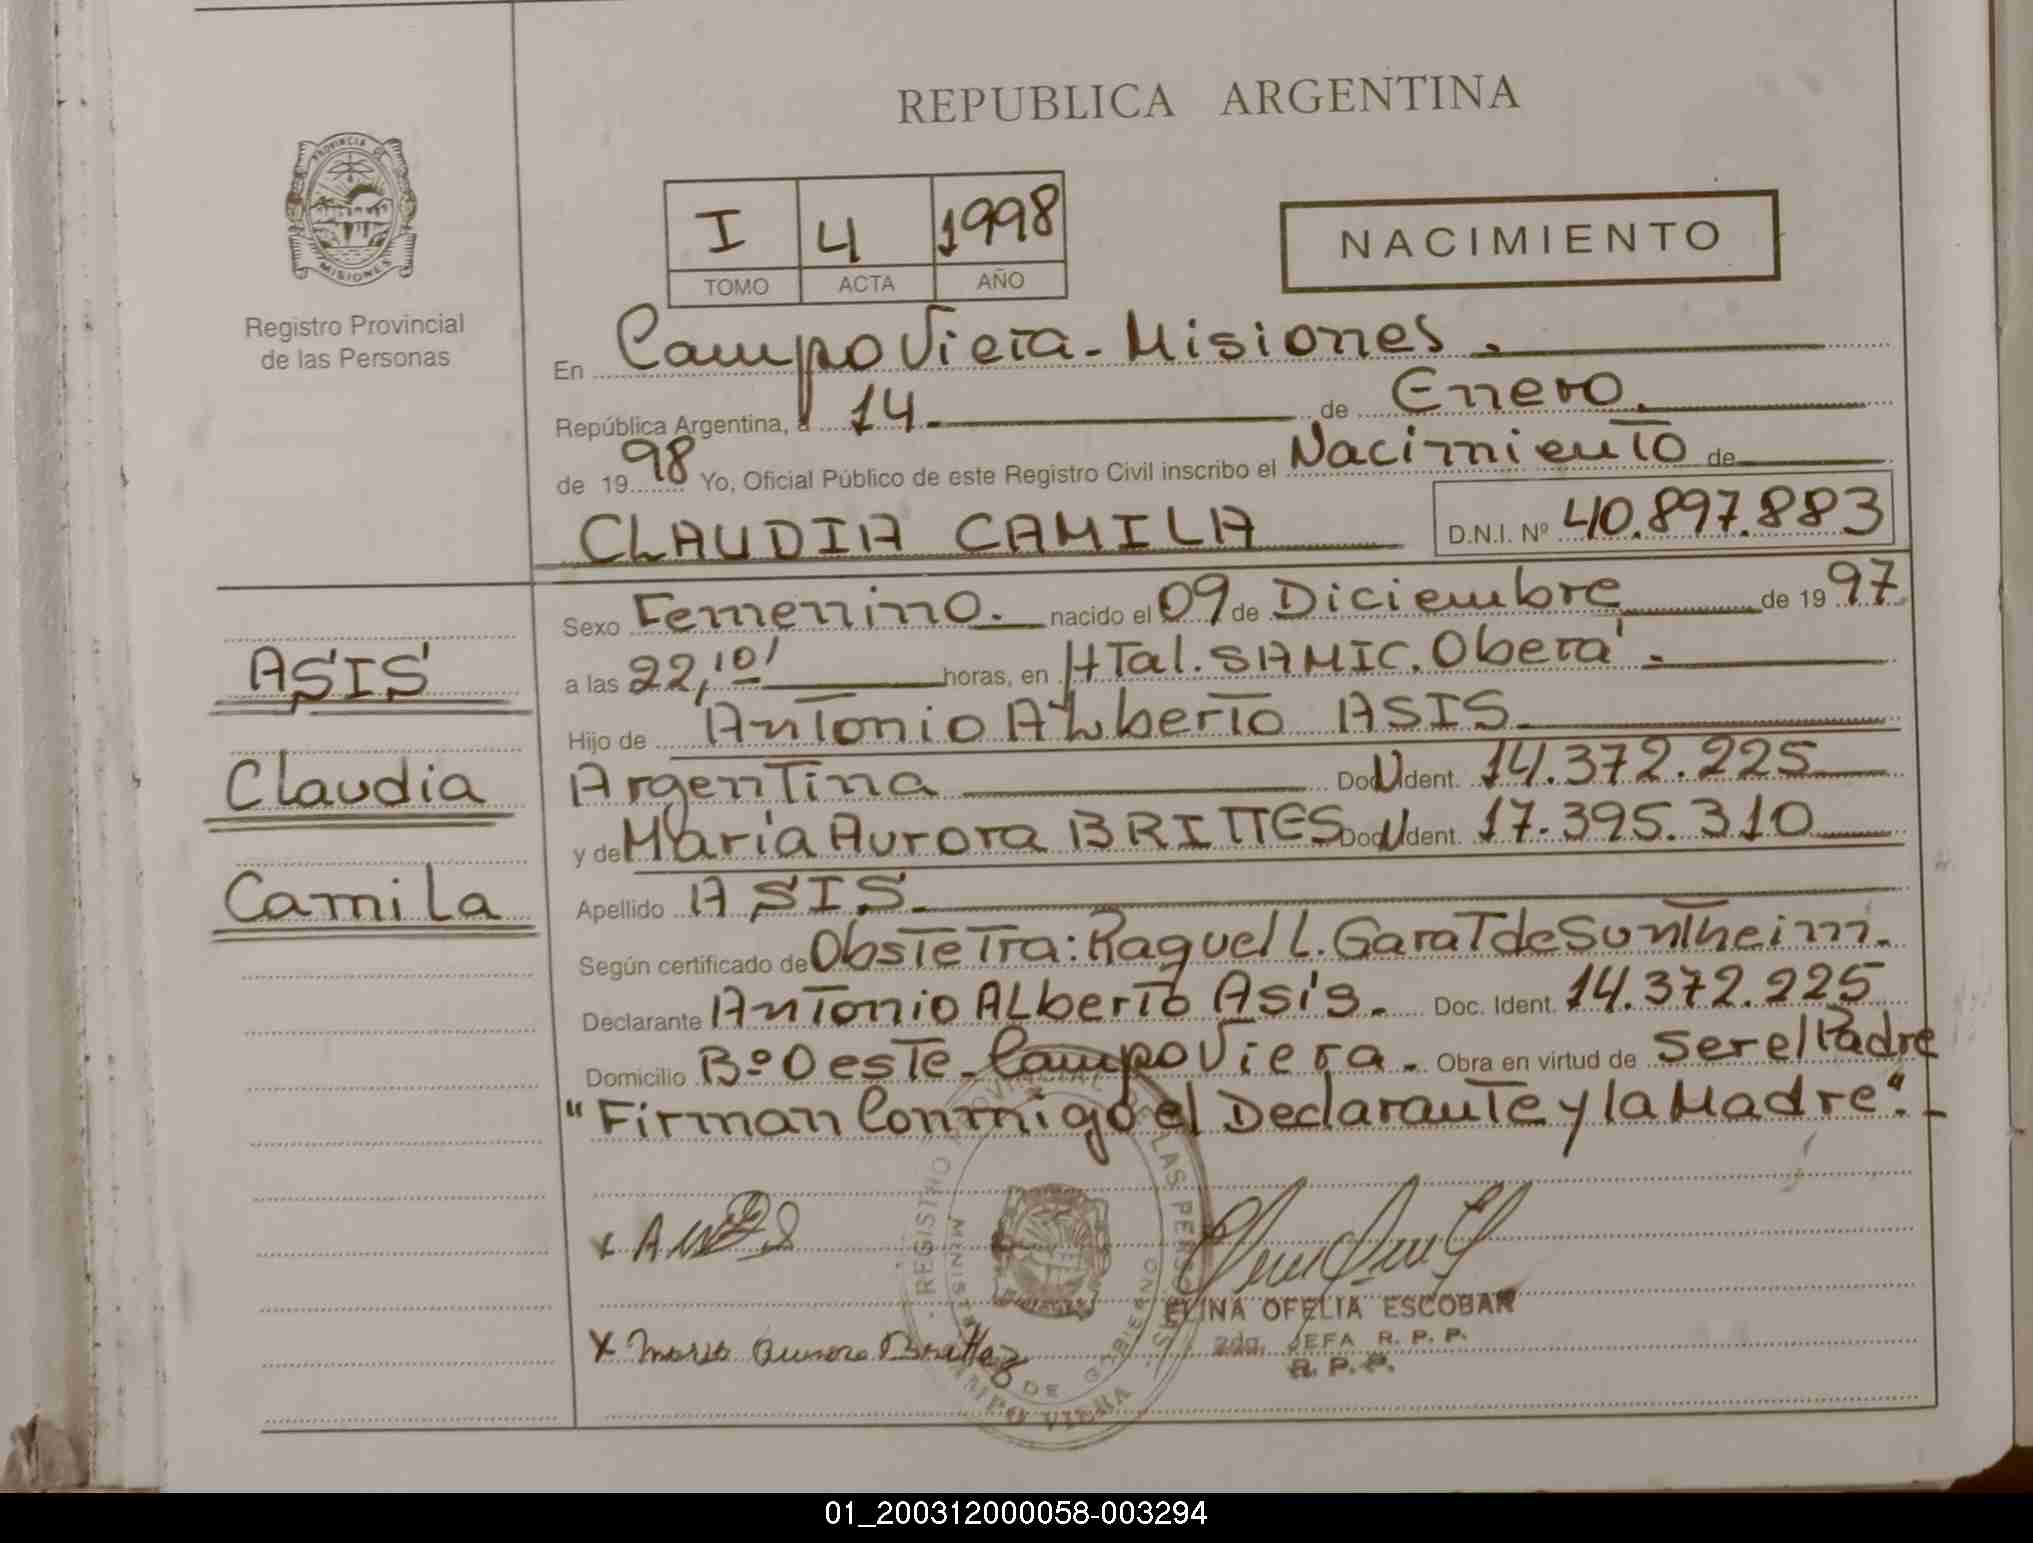 REPUBLICA ARGENTINA
PROVINCIA DE
MISIONES
Registro Provincial
de las Personas
I 4 1998
TOMO ACTA AÑO
NACIMIENTO
En Campo Viera - Misiones.
República Argentina, a 14 de Enero.
de 19 98 Yo, Oficial Público de este Registro Civil inscribo el Nacimiento de
CLAUDIA CAMILA D.N.I. Nº 40.897.883
ASIS
Claudia
Camila
Sexo Femenino. nacido el 09 de Diciembre de 19 97
a las 22,10' horas, en HTal. SAMIC. Oberá.
Hijo de Antonio Alberto ASIS
Argentina Doc U Ident. 14.372.225
y de María Aurora BRITTES Doc U Ident. 17.395.310
Apellido ASIS.
Según certificado de Obstetra: Raquel L. Garat de Suntheim.
Declarante Antonio Alberto Asís. Doc. Ident. 14.372.225
Domicilio Bº Oeste - Campo Viera. Obra en virtud de ser el Padre
"Firman Conmigo el Declarante y la Madre".-
REGISTRO PROVINCIAL DE LAS PERSONAS
DE GOBIERNO
CAMPO VIERA
ELINA OFELIA ESCOBAR
2da. JEFA R. P. P.
R. P. P.
01_200312000058-003294